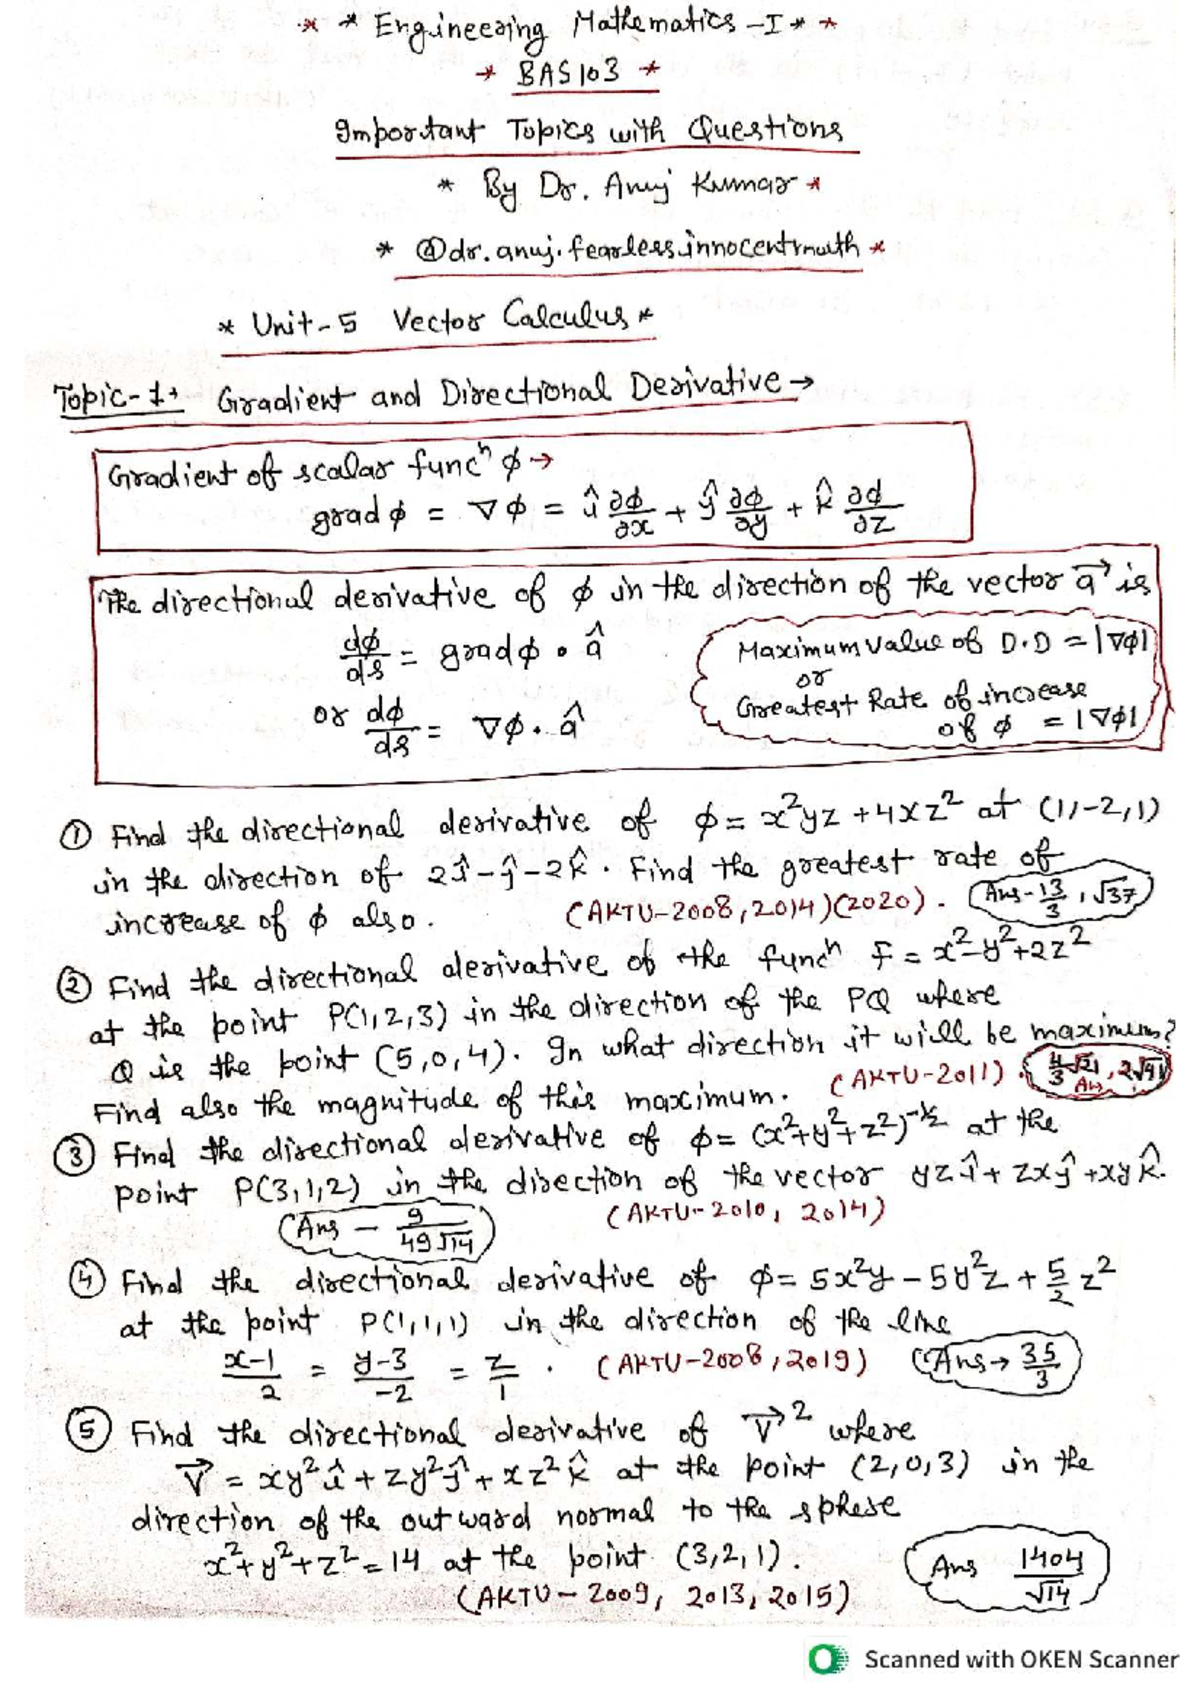 * * Engineering Mathematics -I * *
* BAS103 *
Important Topics with Questions
* By Dr. Anuj Kumar *
* @dr.anuj.fearless.innocentmath *
* Unit-5 Vector Calculus *
Topic-1: Gradient and Directional Derivative →
Gradient of scalar funcⁿ ϕ →
grad ϕ = ∇ϕ = î ∂ϕ/∂x + ŷ ∂ϕ/∂y + k̂ ∂ϕ/∂z
The directional derivative of ϕ in the direction of the vector a⃗ is
dϕ/ds = grad ϕ • â
or dϕ/ds = ∇ϕ . â
Maximum value of D.D = |∇ϕ|
or
Greatest Rate of increase
of ϕ = |∇ϕ|
① Find the directional derivative of ϕ = x²yz + 4xz² at (1,-2,1)
in the direction of 2î - ĵ - 2k̂ . Find the greatest rate of
increase of ϕ also. (AKTU-2008, 2014)(2020) . Ans - 13/3 , √37
② Find the directional derivative of the funcⁿ F = x²-y²+2z²
at the point P(1,2,3) in the direction of the PQ where
Q is the point (5,0,4). In what direction it will be maximum?
Find also the magnitude of this maximum. (AKTU-2011) . 4/3 √21 , 2√41 Ans
③ Find the directional derivative of ϕ = (x²+y²+z²)^-½ at the
point P(3,1,2) in the direction of the vector yz î + zx ĵ + xy k̂.
Ans - 9/49√14 (AKTU-2010, 2014)
④ Find the directional derivative of ϕ = 5x²y - 5y²z + 5/2 z²
at the point P(1,1,1) in the direction of the line
x-1/2 = y-3/-2 = z/1 . (AKTU-2008, 2019) (Ans → 35/3
⑤ Find the directional derivative of V⃗² where
V⃗ = xy² î + zy² ĵ + xz² k̂ at the point (2,0,3) in the
direction of the outward normal to the sphere
x²+y²+z² = 14 at the point (3,2,1).
(AKTU - 2009, 2013, 2015) Ans 1404/√14
Scanned with OKEN Scanner